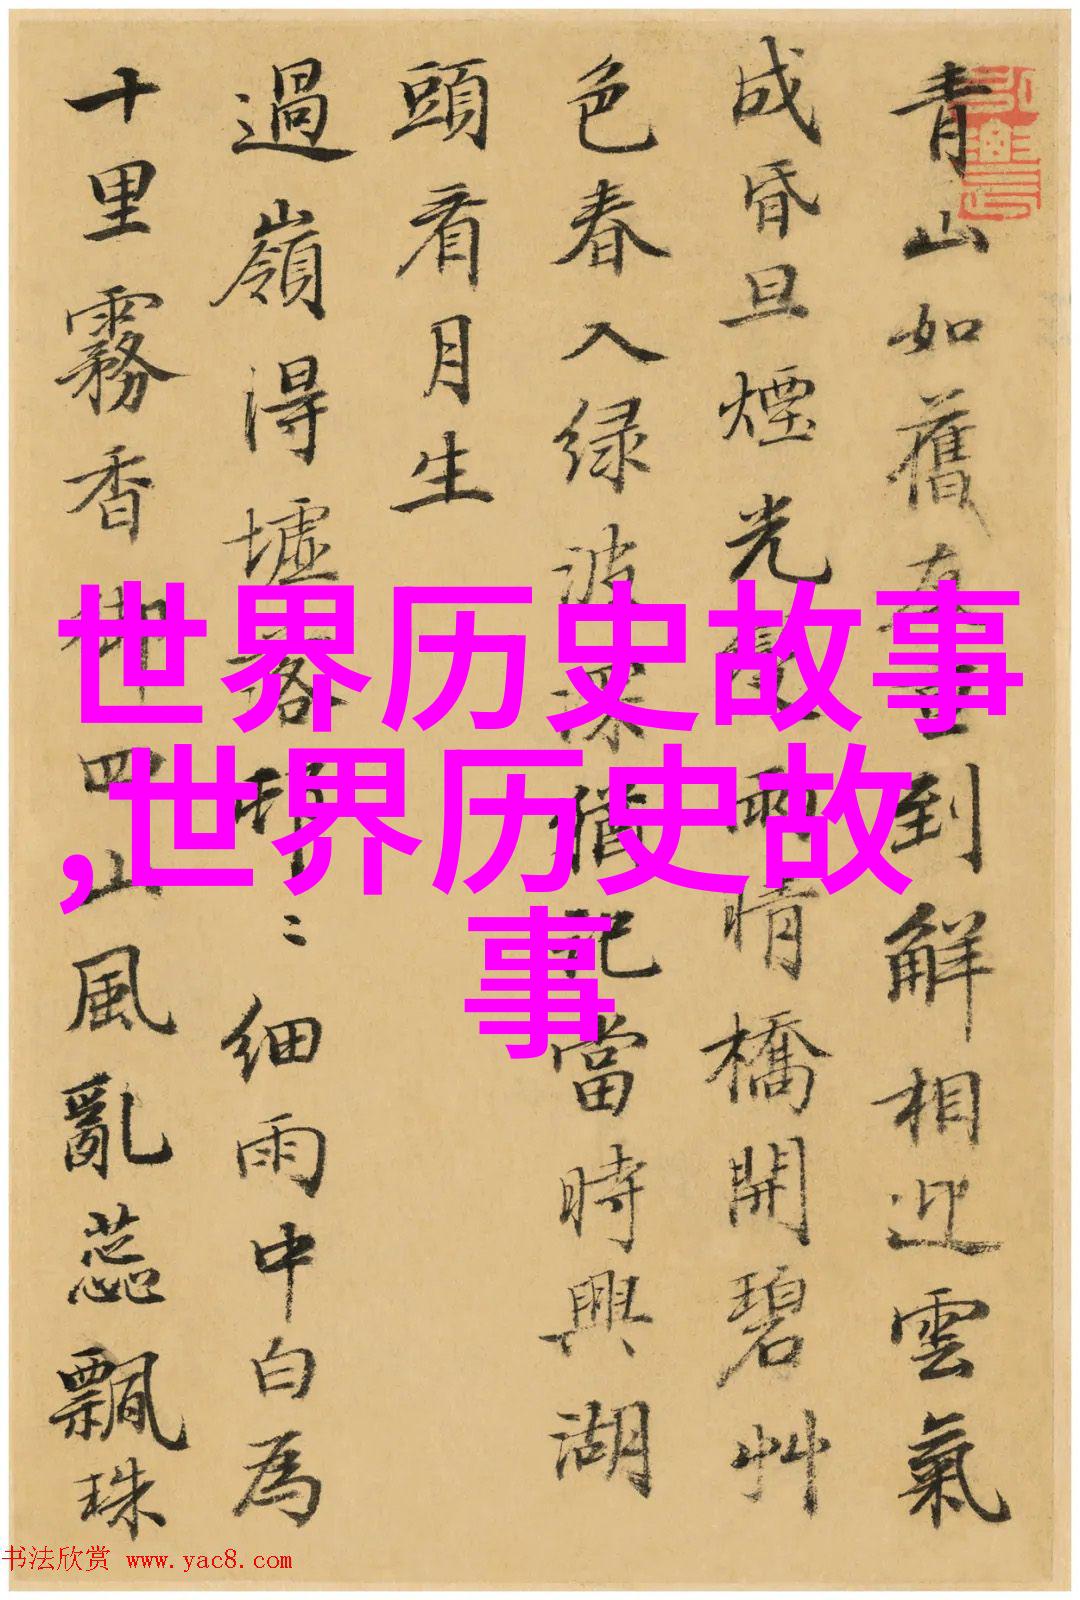 青山如舊
到解相迎雲氣
成昏旦煙光
雨晴橋開碧艸
色春入绿波深猶記當時興湖
頭看月生
過嶺得墟落
細雨中白為
十里霧香
四山風亂蕊飄珠
世界历史故事
,世界历史故
事
书法欣赏 www.yac8.com